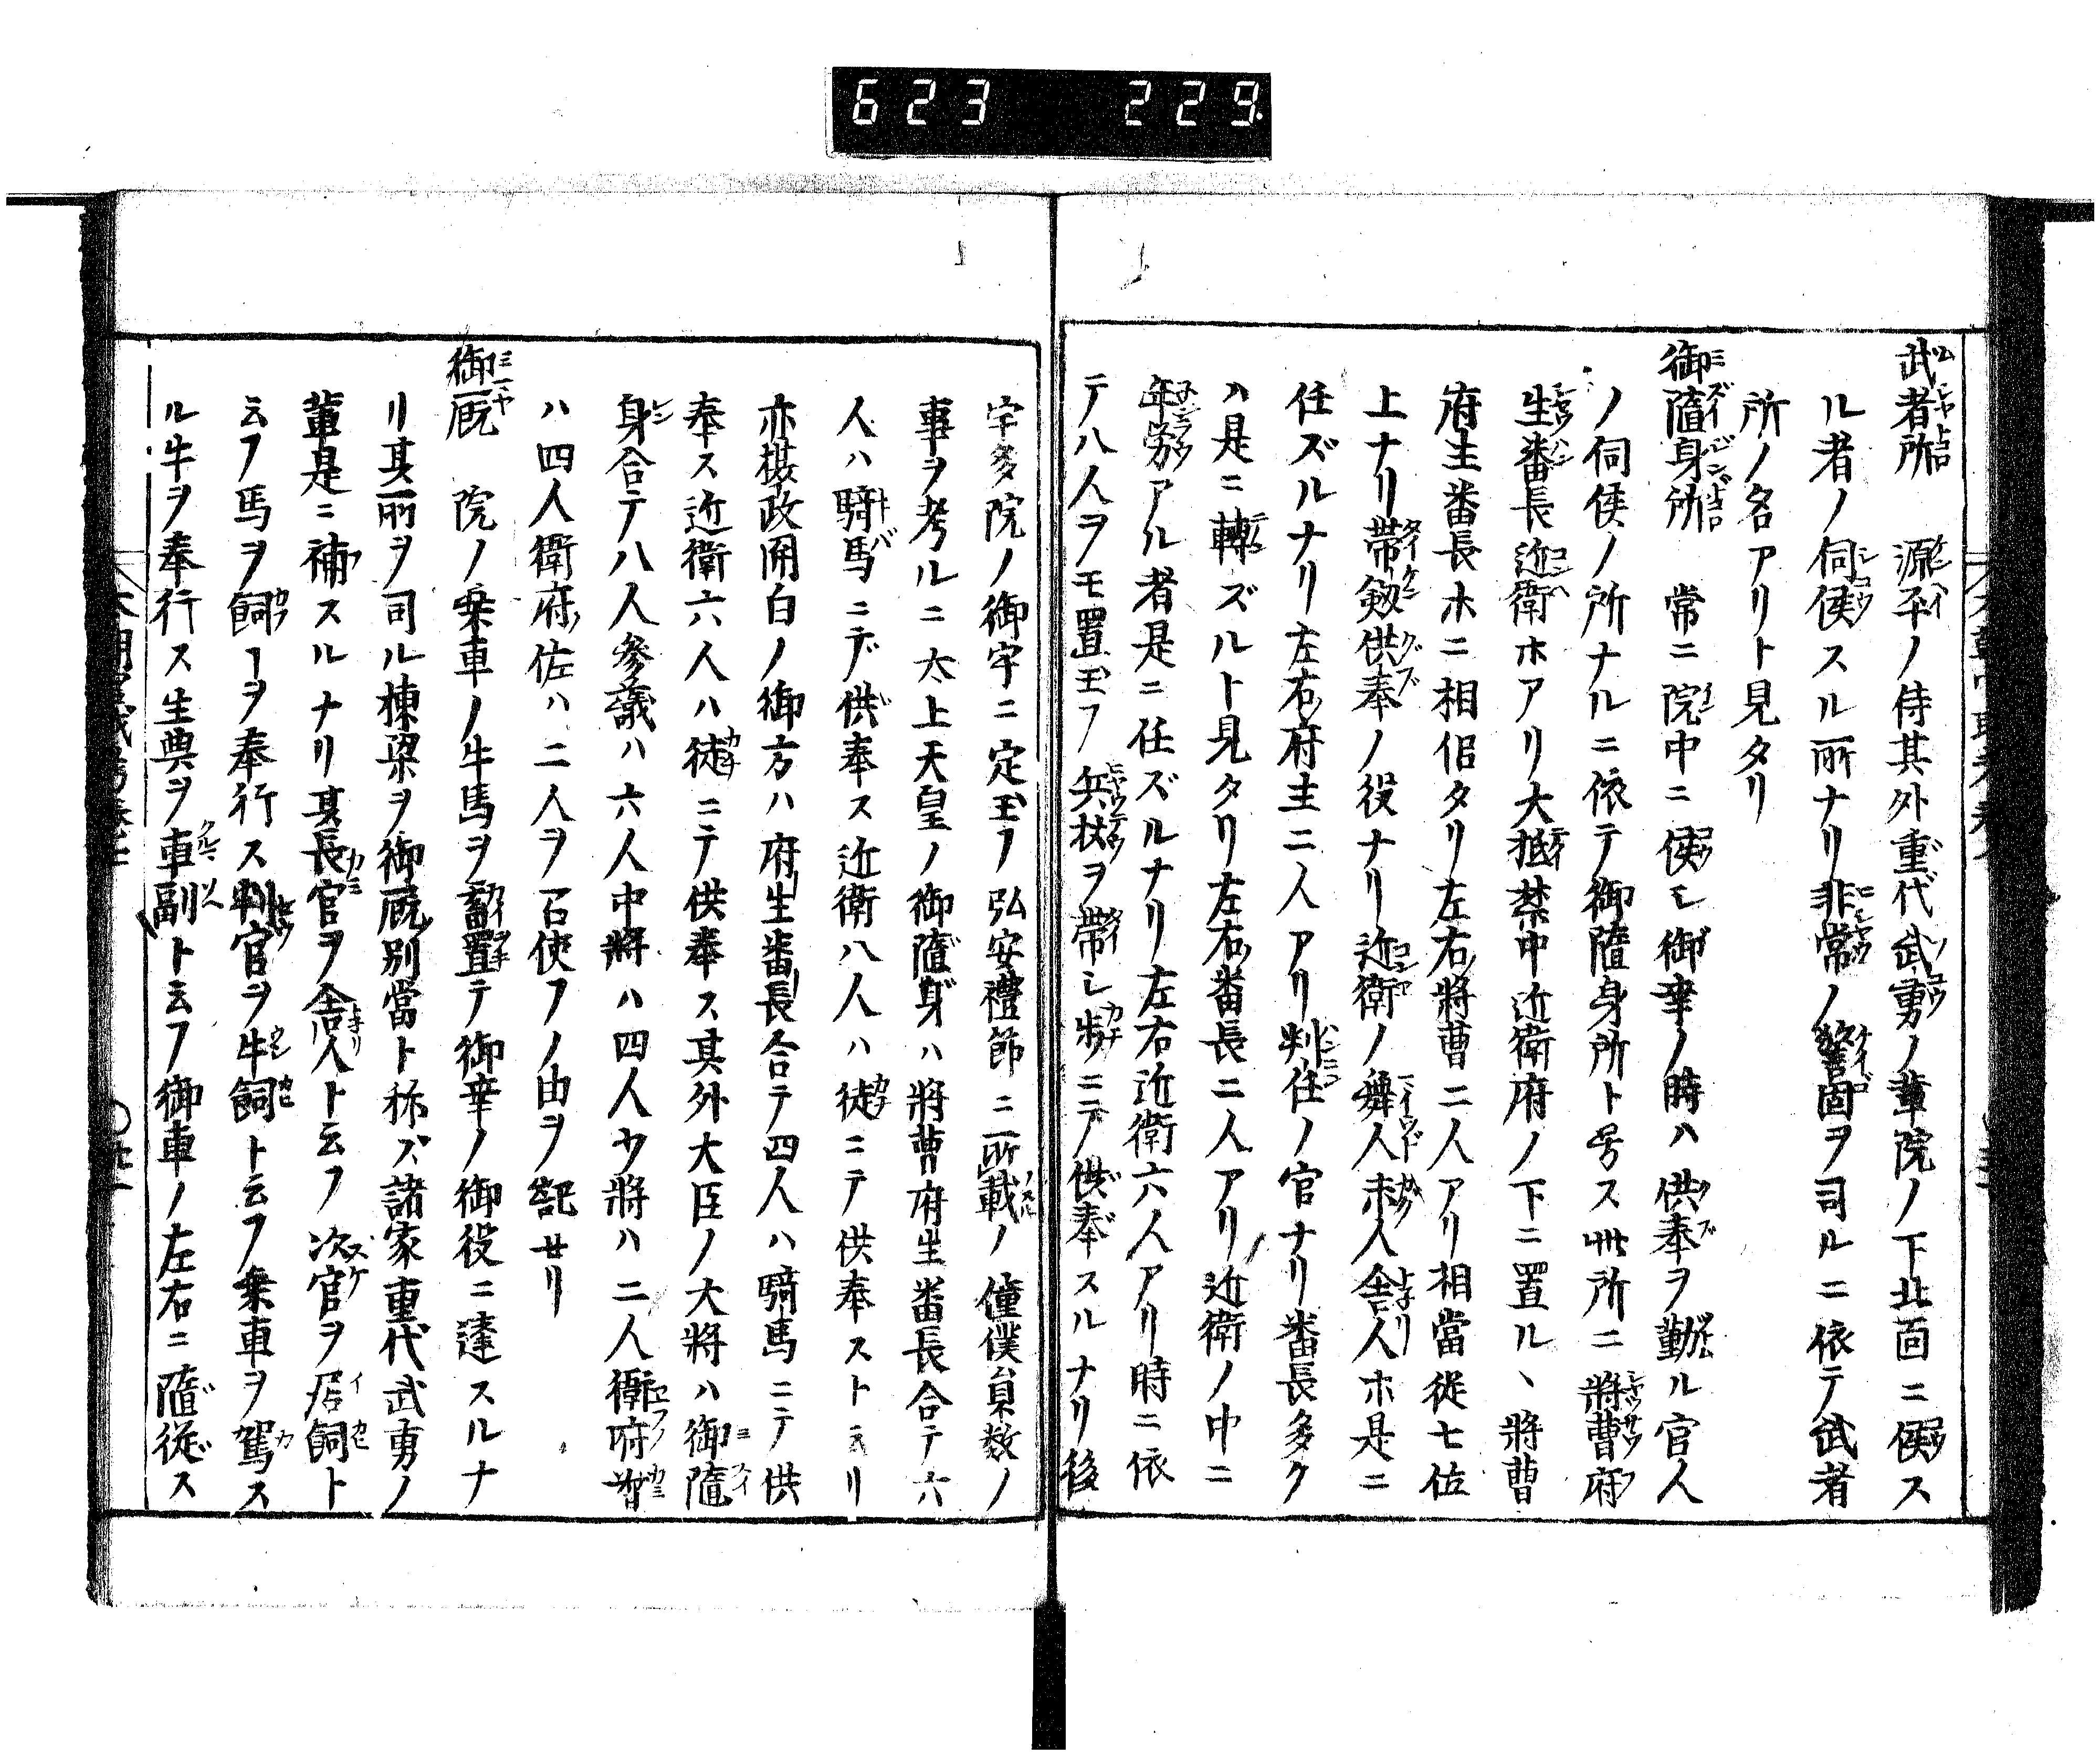 623 229
武者所 源平ノ侍其外重代武勇ノ輩院ノ下北面ニ候ス
ル者ノ伺侯スル所ナリ非常ノ警固ヲ司ルニ依テ武者
所ノ名アリト見タリ
御隨身所 常ニ院中ニ侯シ御幸ノ時ハ供奉ヲ勤ル官人
ノ伺侯ノ所ナルニ依テ御隨身所ト号ス此所ニ將曹府
生番長近衛ホアリ大抵禁中近衛府ノ下ニ置ル丶將曹
府生番長ホニ相侶タリ左右將曹二人アリ相當從七位
上ナリ帶剱供奉ノ役ナリ近衛ノ舞人求人舎人ホ是ニ
任ズルナリ左右府生二人アリ判任ノ官ナリ番長多ク
ハ是ニ轉ズルト見タリ左右番長二人アリ近衛ノ中ニ
年労アル者是ニ任ズルナリ左右近衛六人アリ時ニ依
テハ人ヲノモ置玉フ兵杖ヲ帶シ歩ニテ供奉スルナリ後
宇多院ノ御宇ニ定玉フ弘安禮節ニ所載ノ僮僕員数ノ
事ヲ考ルニ太上天皇ノ御隨身ハ將曹府生番長合テ六
人ハ騎馬ニテ供奉ス近衛八人ハ徒ニテ供奉スト云リ
亦摂政関白ノ御方ハ府生番長合テ四人ハ騎馬ニテ供
奉ス近衛六人ハ徒ニテ供奉ス其外大臣ノ大將ハ御隨
身合テ八人参議ハ六人中將ハ四人少將ハ二人衛府督
ハ四人衛府佐ハ二人ヲ召使フノ由ヲ記セリ
御厩 院ノ乗車ノ牛馬ヲ畜置テ御幸ノ御役ニ達スルナ
リ其所ヲ司ル棟梁ヲ御厩別當ト称ズ諸家重代武勇ノ
輩是ニ補スルナリ其長官ヲ舎人ト云フ次官ヲ居飼ト
云フ馬ヲ飼ーヲ奉行ス判官ヲ牛飼ト云フ乗車ヲ駕ス
ル牛ヲ奉行ス生典ヲ車副ト云フ御車ノ左右ニ隨從ス